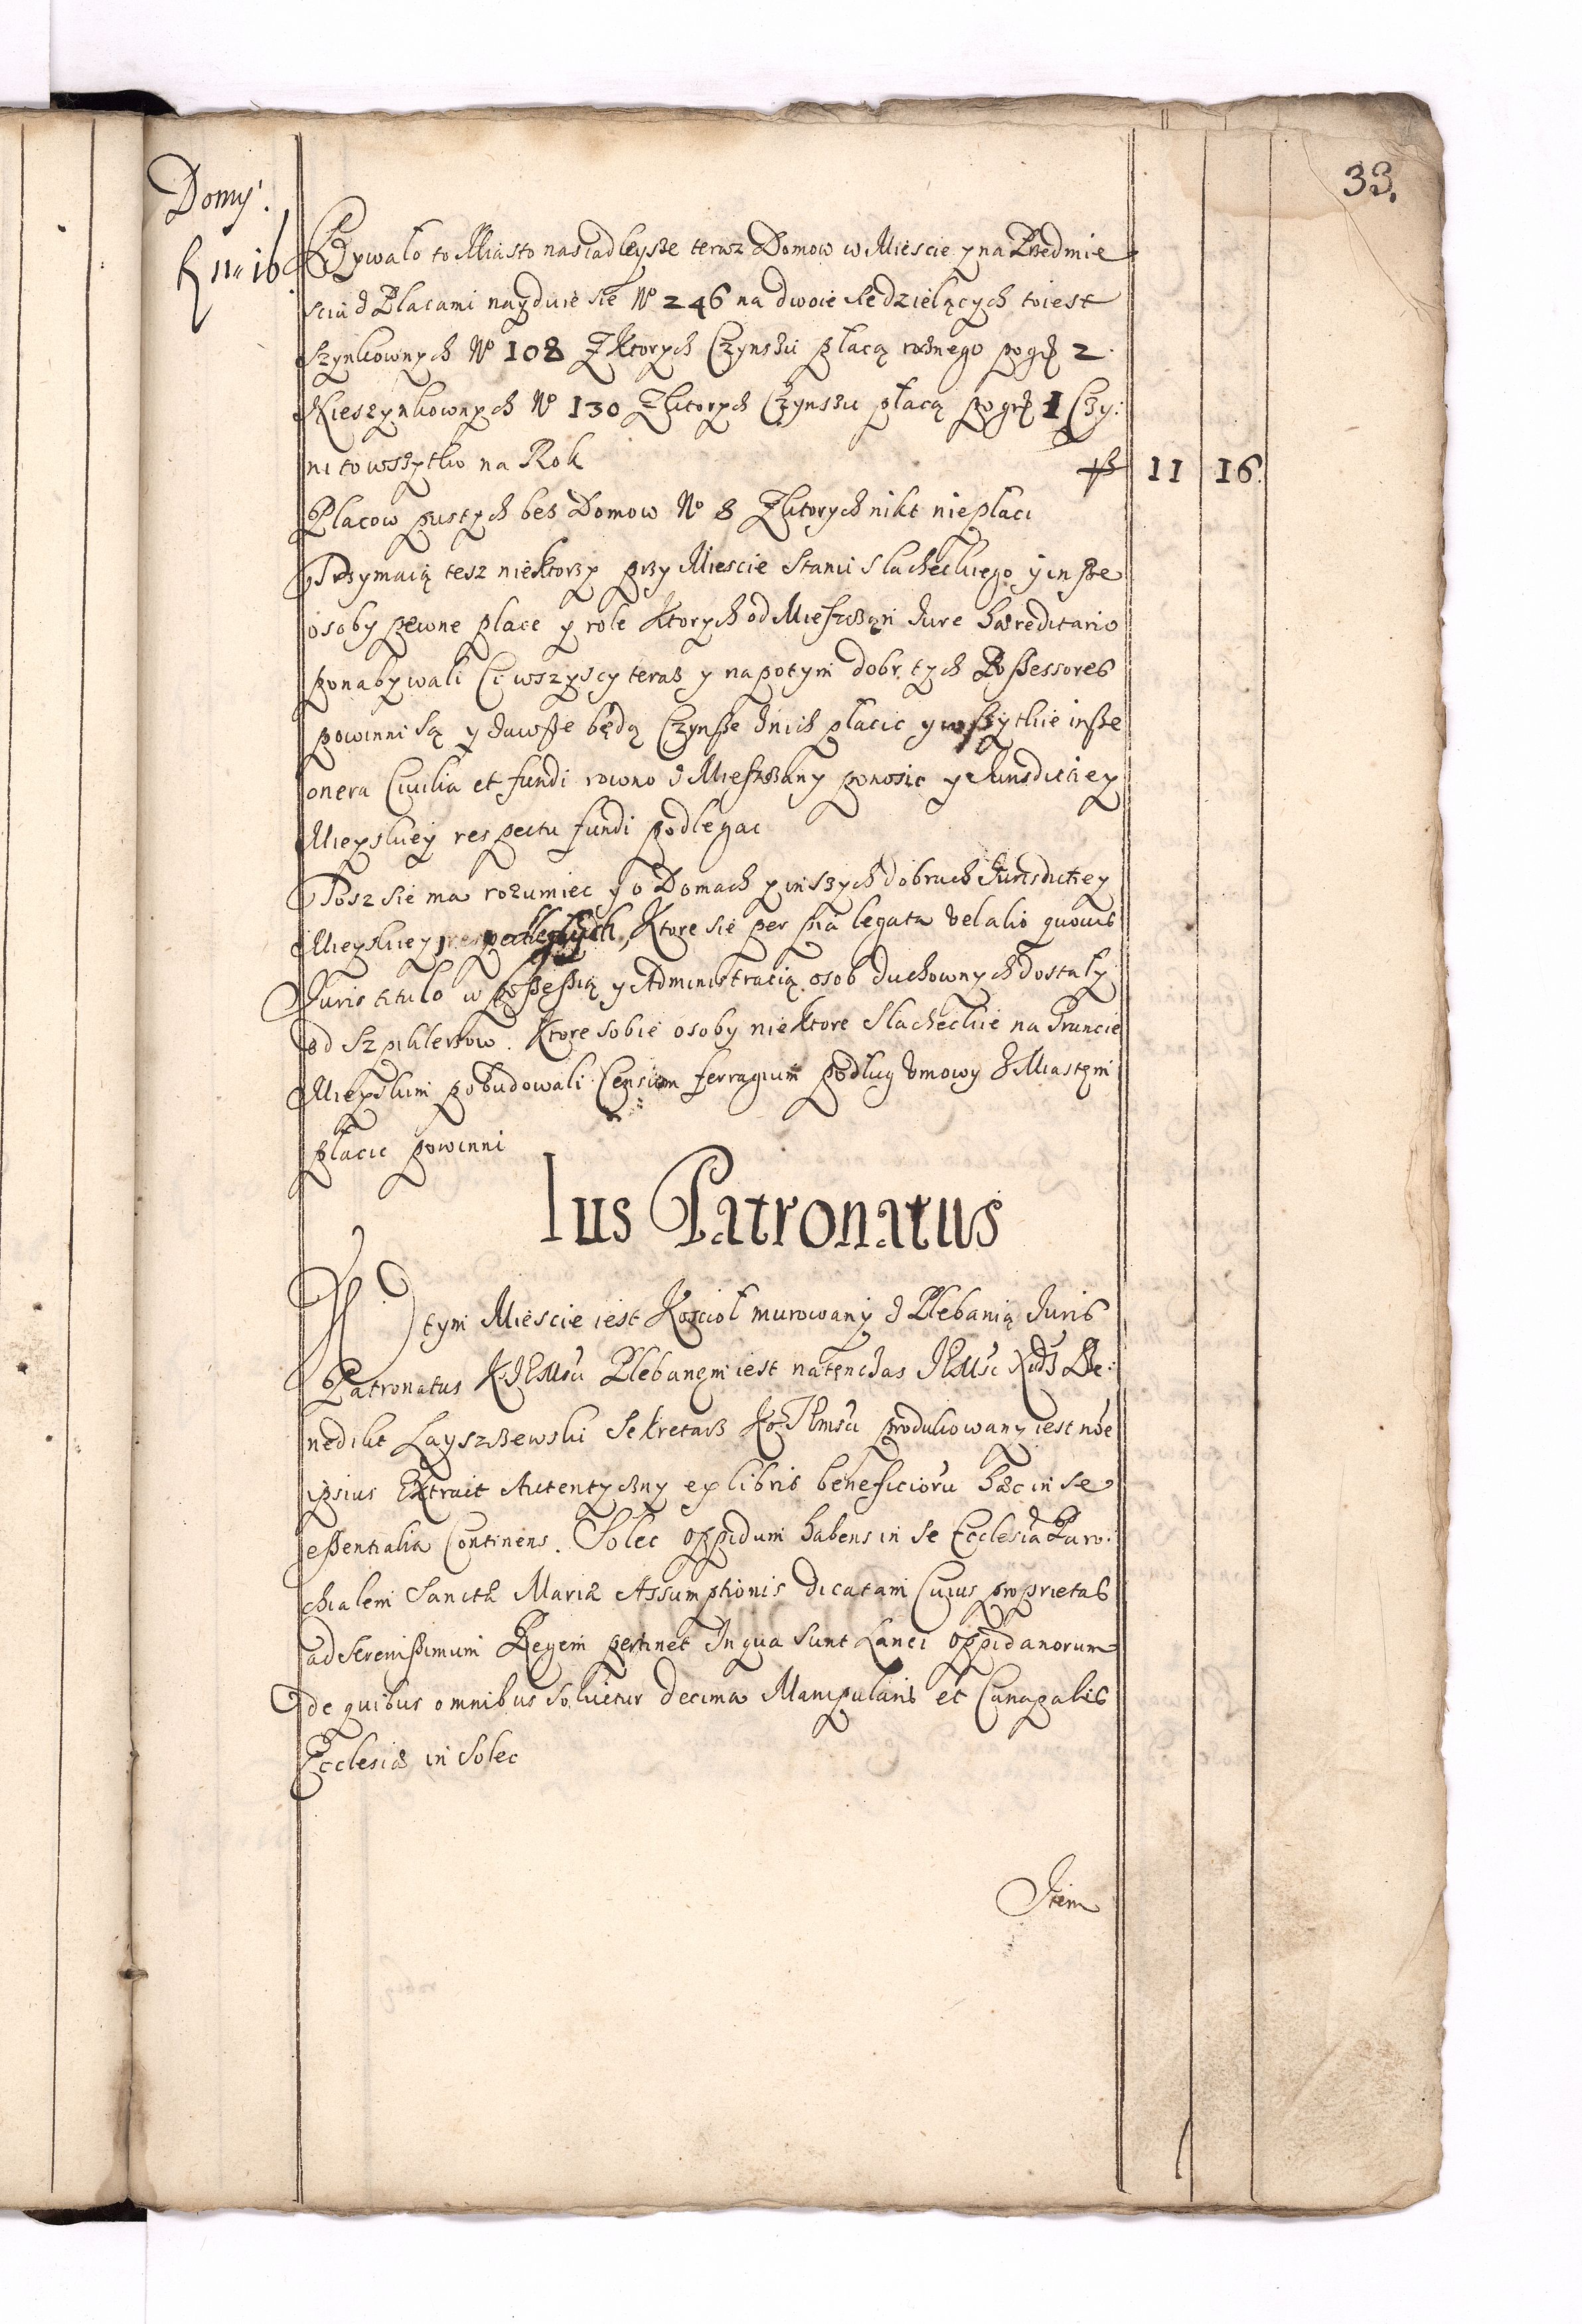 33.
Domy.
f 11 " 16
Bywało to Miasto nasiadleysze teraz Domow w Miescie y na Przedmie
sciu z Placami nayduie sie No 246 na dwoie sie dzielących toiest
szynkownych No 108 Z ktorych Czynszu płacą rożnego po gr 2.
Nieszynkownych No 130 Z ktorych Czynszu płacą po gr 1 Czy:
ni to wszytko na Rok 11 16.
Placow pustych bes Domow No 8 Z ktorych nikt niepłaci
Trzymaią tesz niektorzy przy Miescie Stanu Slacheckiego y insze
osoby pewne place y role ktorych od Mieszczan Iure hæreditario
ponabywali Ci wszyscy teraz y napotym dobr tych Possessores
powinni są y zawsze będą Czynsze z nich płacic y wszytkie insze
onera Ciuilia et fundi rowno z Mieszczany ponosic y Iurisditiey
Mieyskiey respectu fundi podlegac
Tosz sie ma rozumiec y o Domach y inszych dobrach Iurisdictiey
Mieyskiey podległych, Ktore sie per pia legata vel alio quouis
Iuris titulo w possessią y Administracią osob duchownych dostały
od Szpiklerzow. Ktore sobie osoby niektore Slacheckie na Gruncie
Mieyskim pobudowali Censum terragium podług vmowy z Miastem
płacic powinni
Ius Patronatus
W tym Miescie iest Kosciol murowany z Plebanią Iuris
Patronatus KJEMsci Plebanem iest natenczas JEMsc Xdz Be:
nedikt Layszczewski Sekretarz Ko JEmsci produkowany iest noe
ipsius Extract Autentyczny ex libris beneficioru hæc in se
essentialia Continens. Solec oppidum habens in se Ecclesia Paro:
chialem Sanctæ Mariæ Assumptionis dicatam Cuius proprietas
ad Serenissimum Regem pertinet In qua sunt Lanei oppidanorum
de quibus omnibus soluietur decima Manipularis et Canapalis
Ecclesiæ in Solec
Item